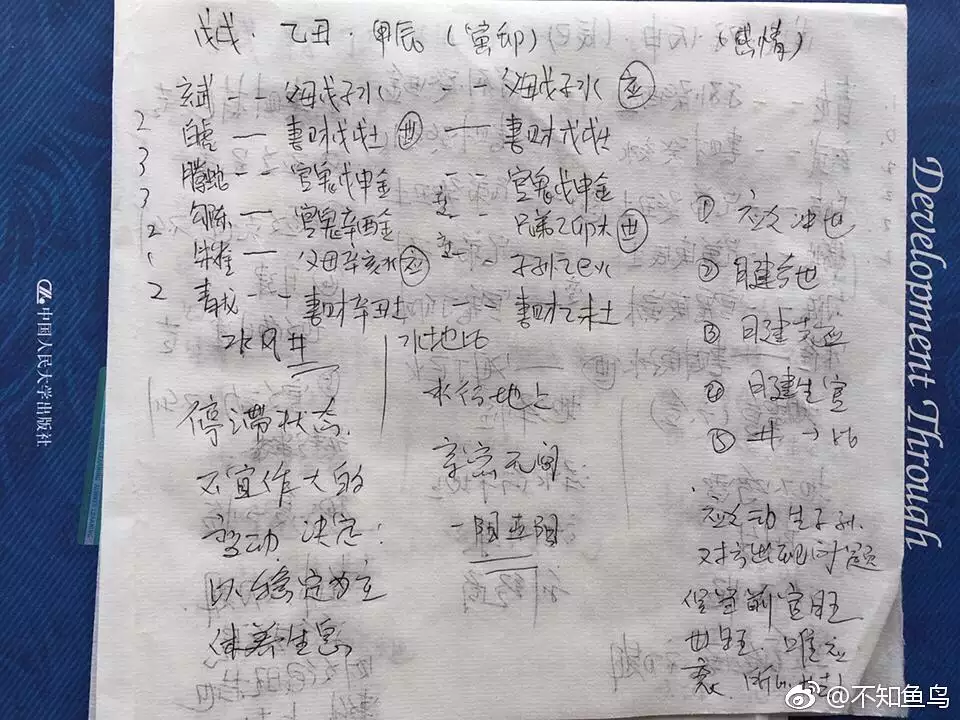 戊戌·乙丑·甲辰(寅卯) (感情)
玄武 -- 父母戊子水 -- 父母戊子水 应
2 白虎 — 妻财戊戌土 世 — 妻财戊戌土
3 腾蛇 -- 官鬼戊申金 -- 官鬼戊申金
3 勾陈 — 官鬼辛酉金 -- 兄弟乙卯木 世
2 朱雀 — 父母辛亥水 应 -- 子孙乙巳火
2 青龙 -- 妻财辛丑土 妻财乙未土
水风井
停滞状态.
不宜作大的
变动 决定:
以稳定为主
休养生息
水地比
水行地上
亲密无间
① 应爻冲世
② 日建合世
③ 月建克应
④ 月建生官
⑤ 井→比
应爻动生子孙.
对方出现问题
但官前官旺
世旺. 唯应
衰.
中国人民大学出版社
Development Through
@不知鱼鸟